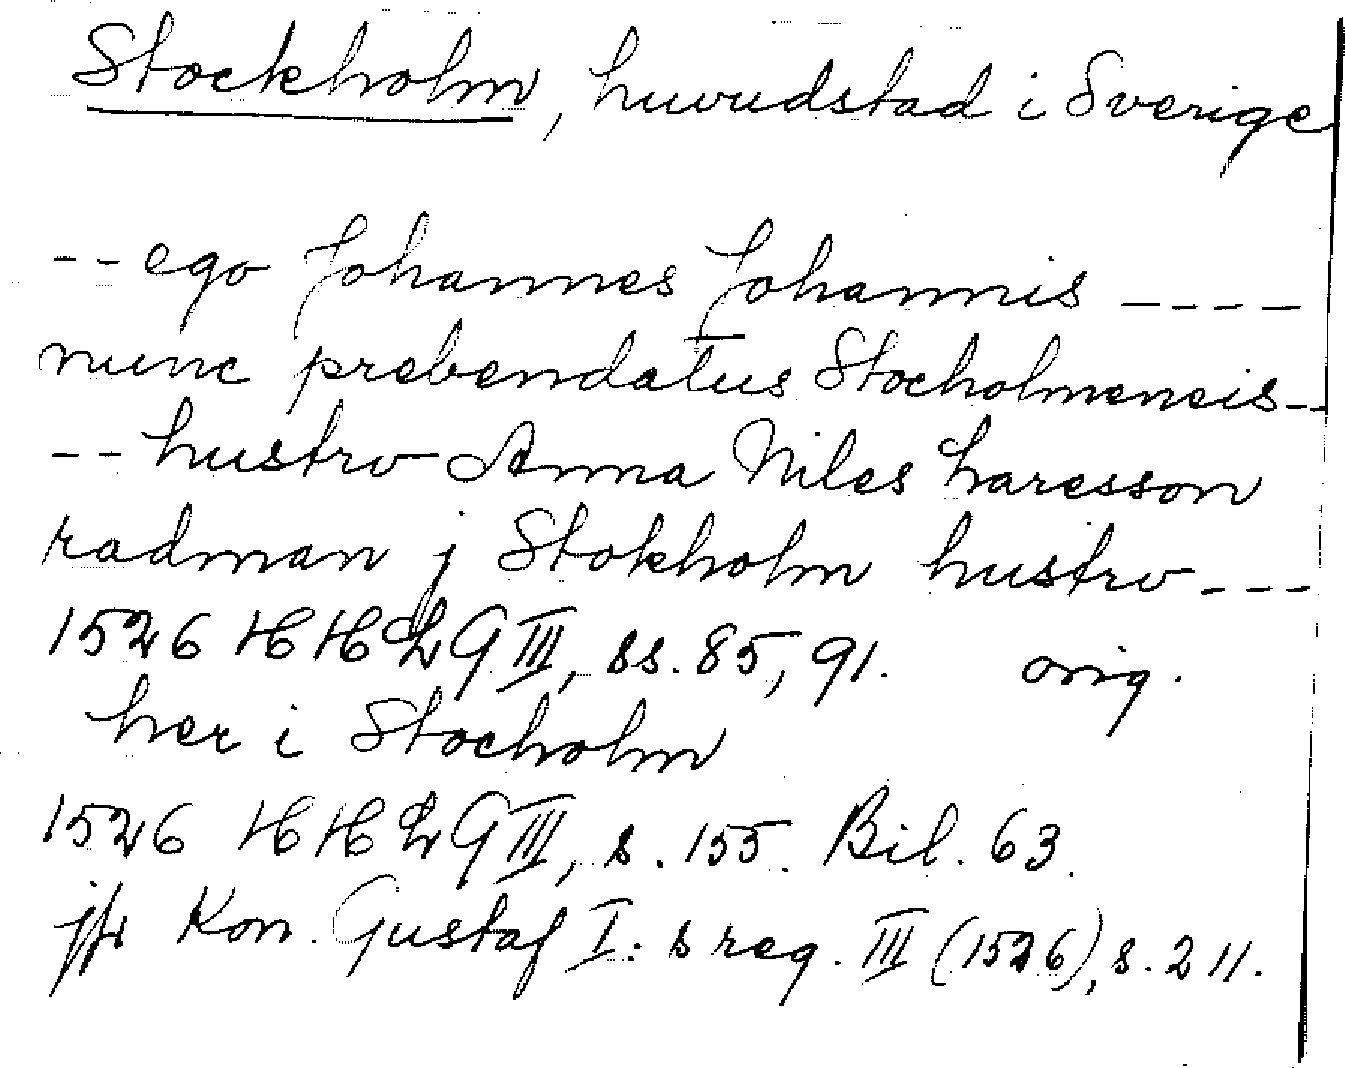 Stockholm, huvudstad i Sverige
-- ego Johannes Johannis ----
nunc prebendatus Stocholmensis --
-- hustro Anna Niles Laresson
radman j Stokholm hustro ---
1526 HH 2 G III, ss. 85, 91. orig.
her i Stocholm
1526 HH 2 G III, s. 155. Bil. 63.
jfr Kon. Gustaf I:s reg. III (1526), s. 211.